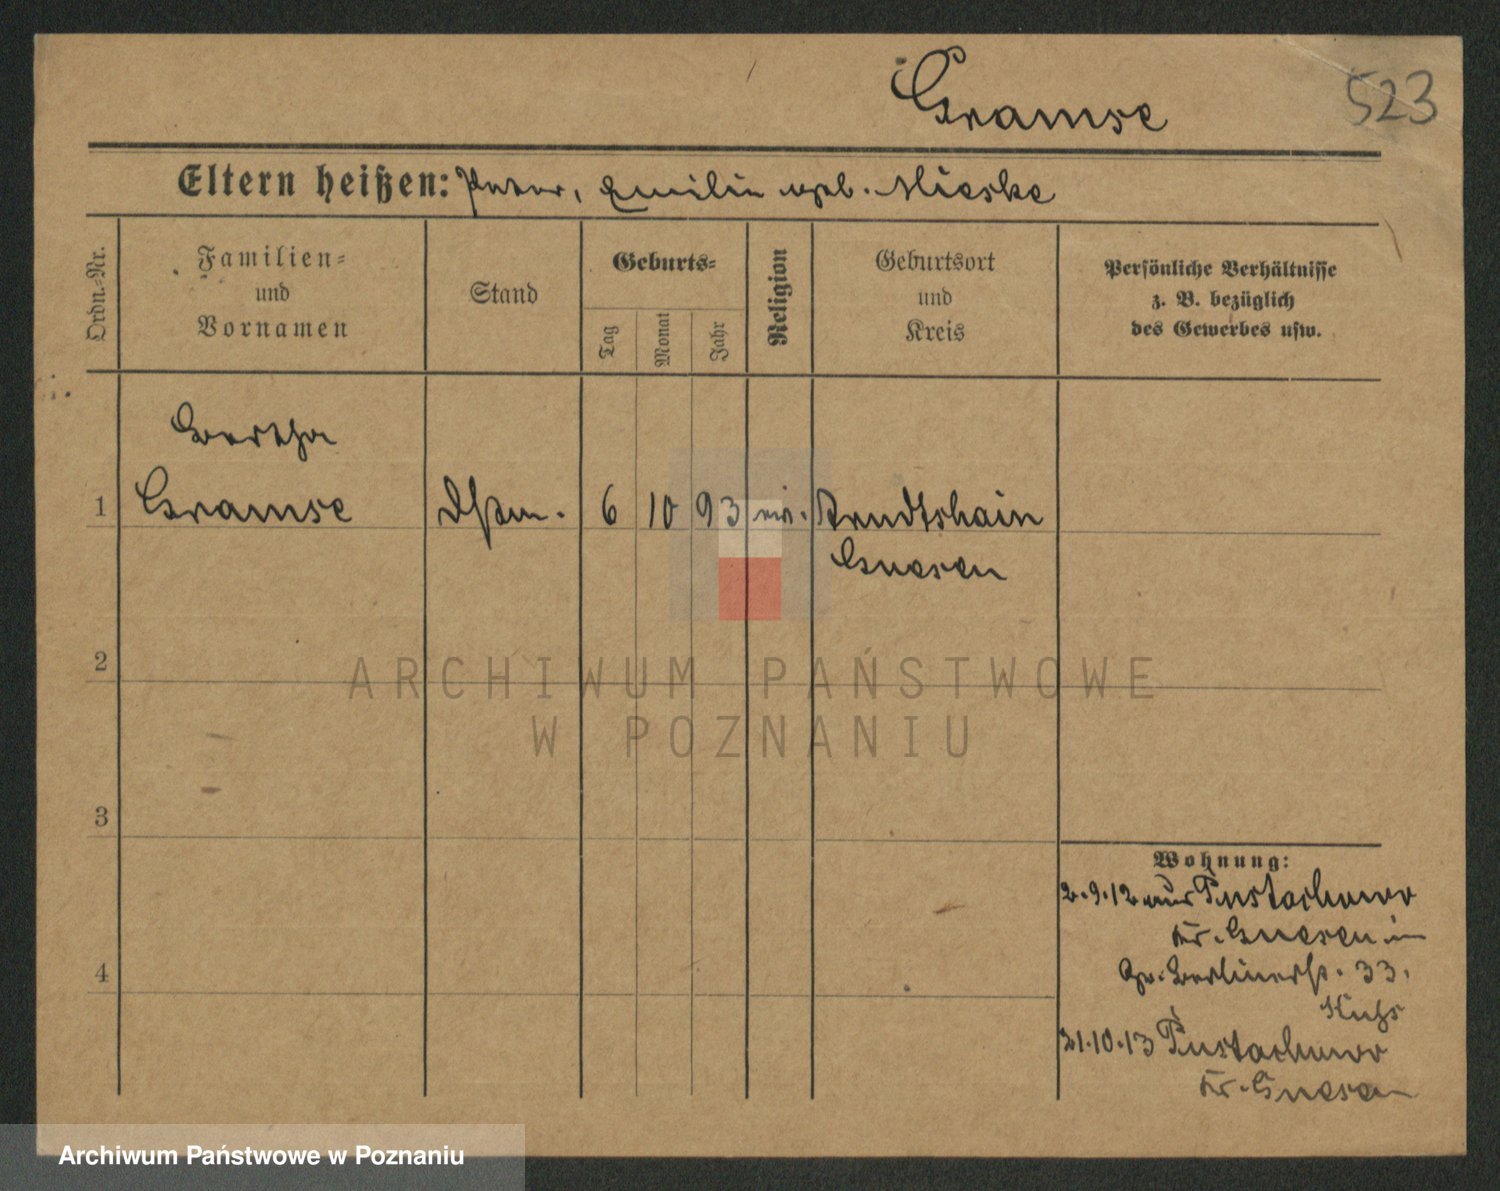 Gramse
523
Eltern heißen: Peter, Emilie geb. Mieske
Ordn.-Nr.
Familien-
und
Vornamen
Stand
Geburts-
Tag
Monat
Jahr
Religion
Geburtsort
und
Kreis
Persönliche Verhältnisse
z. B. bezüglich
des Gewerbes usw.
Bertha
1 Gramse 6 10 93 Arndtshain
Gnesen
2
ARCHIWUM PAŃSTWOWE
W POZNANIU
3
Wohnung:
2.9.12 aus Pustachowo
Kr. Gnesen in
Berlinerst. 33.
4
21.10.13 Pustachowo
Kr. Gnesen
Archiwum Państwowe w Poznaniu